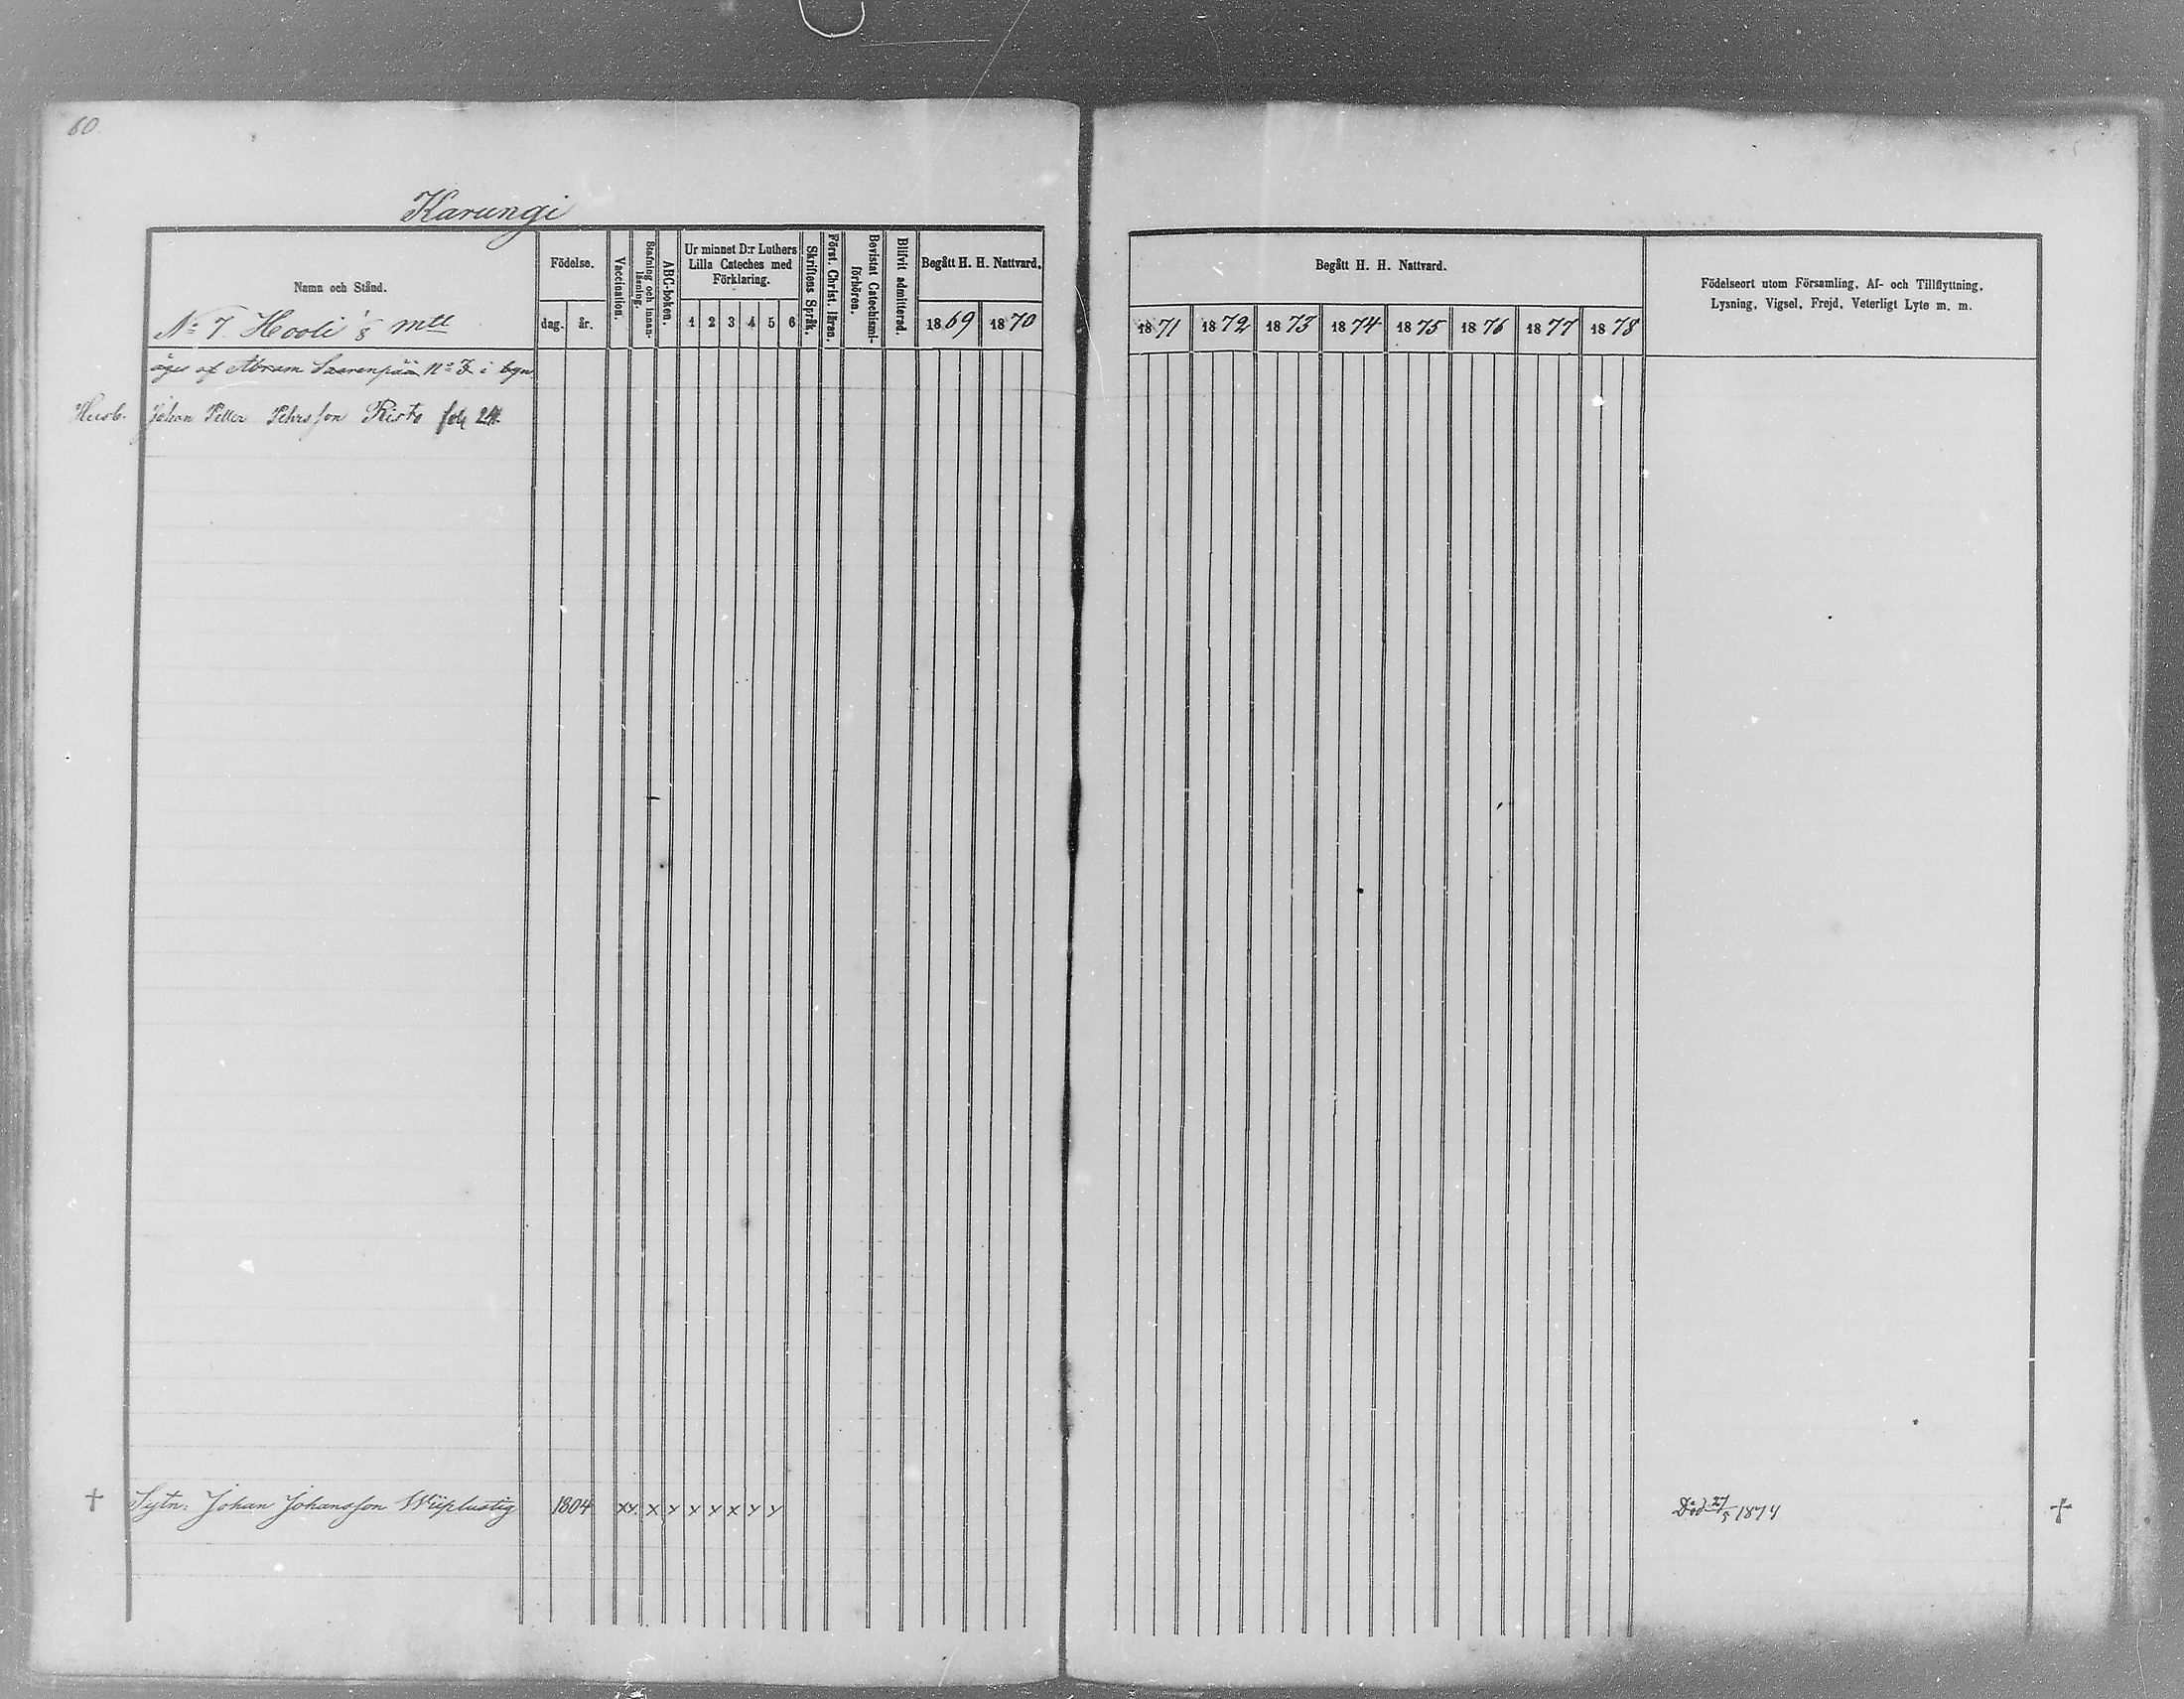 60.
Karungi
Namn och Stånd.
No 7. Hooli 1/8 mtl
Födelse.
dag. år.
Vaccination.
Stafning och innan-läsning.
ABC-boken.
Ur minnet D:r Luthers Lilla Cateches med Förklaring.
1 2 3 4 5 6
Skriftens Språk.
Först. Christ. läran.
Bevistat Catechismi-förhören.
Blifvit admitterad.
Begått H. H. Nattvard.
1869 1870
Begått H. H. Nattvard.
1871 1872 1873 1874 1875 1876 1877 1878
Födelseort utom Församling, Af- och Tillflyttning,
Lysning, Vigsel, Frejd, Veterligt Lyte m. m.
äges af Abram Saarenpää No 3 i byn
Husb. Johan Petter Pehrsson Risto fol 24.
† Sytn: Johan Johansson Wiiplustig 1804 xx. x x x x x x x Död 27/5 1874 †